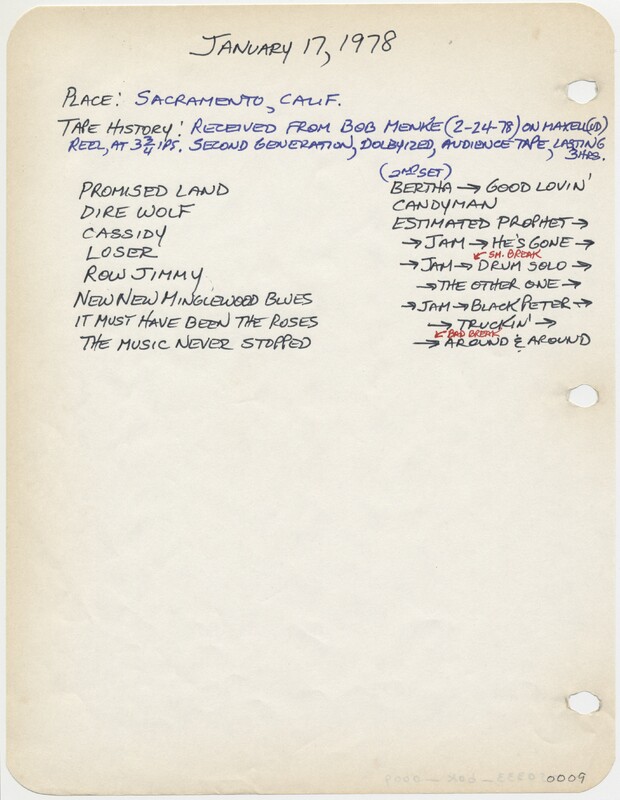 JANUARY 17, 1978
PLACE: SACRAMENTO, CALIF.
TAPE HISTORY: RECEIVED FROM BOB MENKE (2-24-78) ON MAXELL (UD)
REEL, AT 3 3/4 IPS. SECOND GENERATION, DOLBYIZED, AUDIENCE TAPE, LASTING
3 HRS.
PROMISED LAND
DIRE WOLF
CASSIDY
LOSER
ROW JIMMY
NEW NEW MINGLEWOOD BLUES
IT MUST HAVE BEEN THE ROSES
THE MUSIC NEVER STOPPED
(2ND SET)
BERTHA → GOOD LOVIN'
CANDYMAN
ESTIMATED PROPHET →
→ JAM → HE'S GONE →
↙ SM. BREAK
→ JAM → DRUM SOLO →
→ THE OTHER ONE →
→ JAM → BLACK PETER →
→ TRUCKIN' →
↙ BAD BREAK
→ AROUND & AROUND
0009